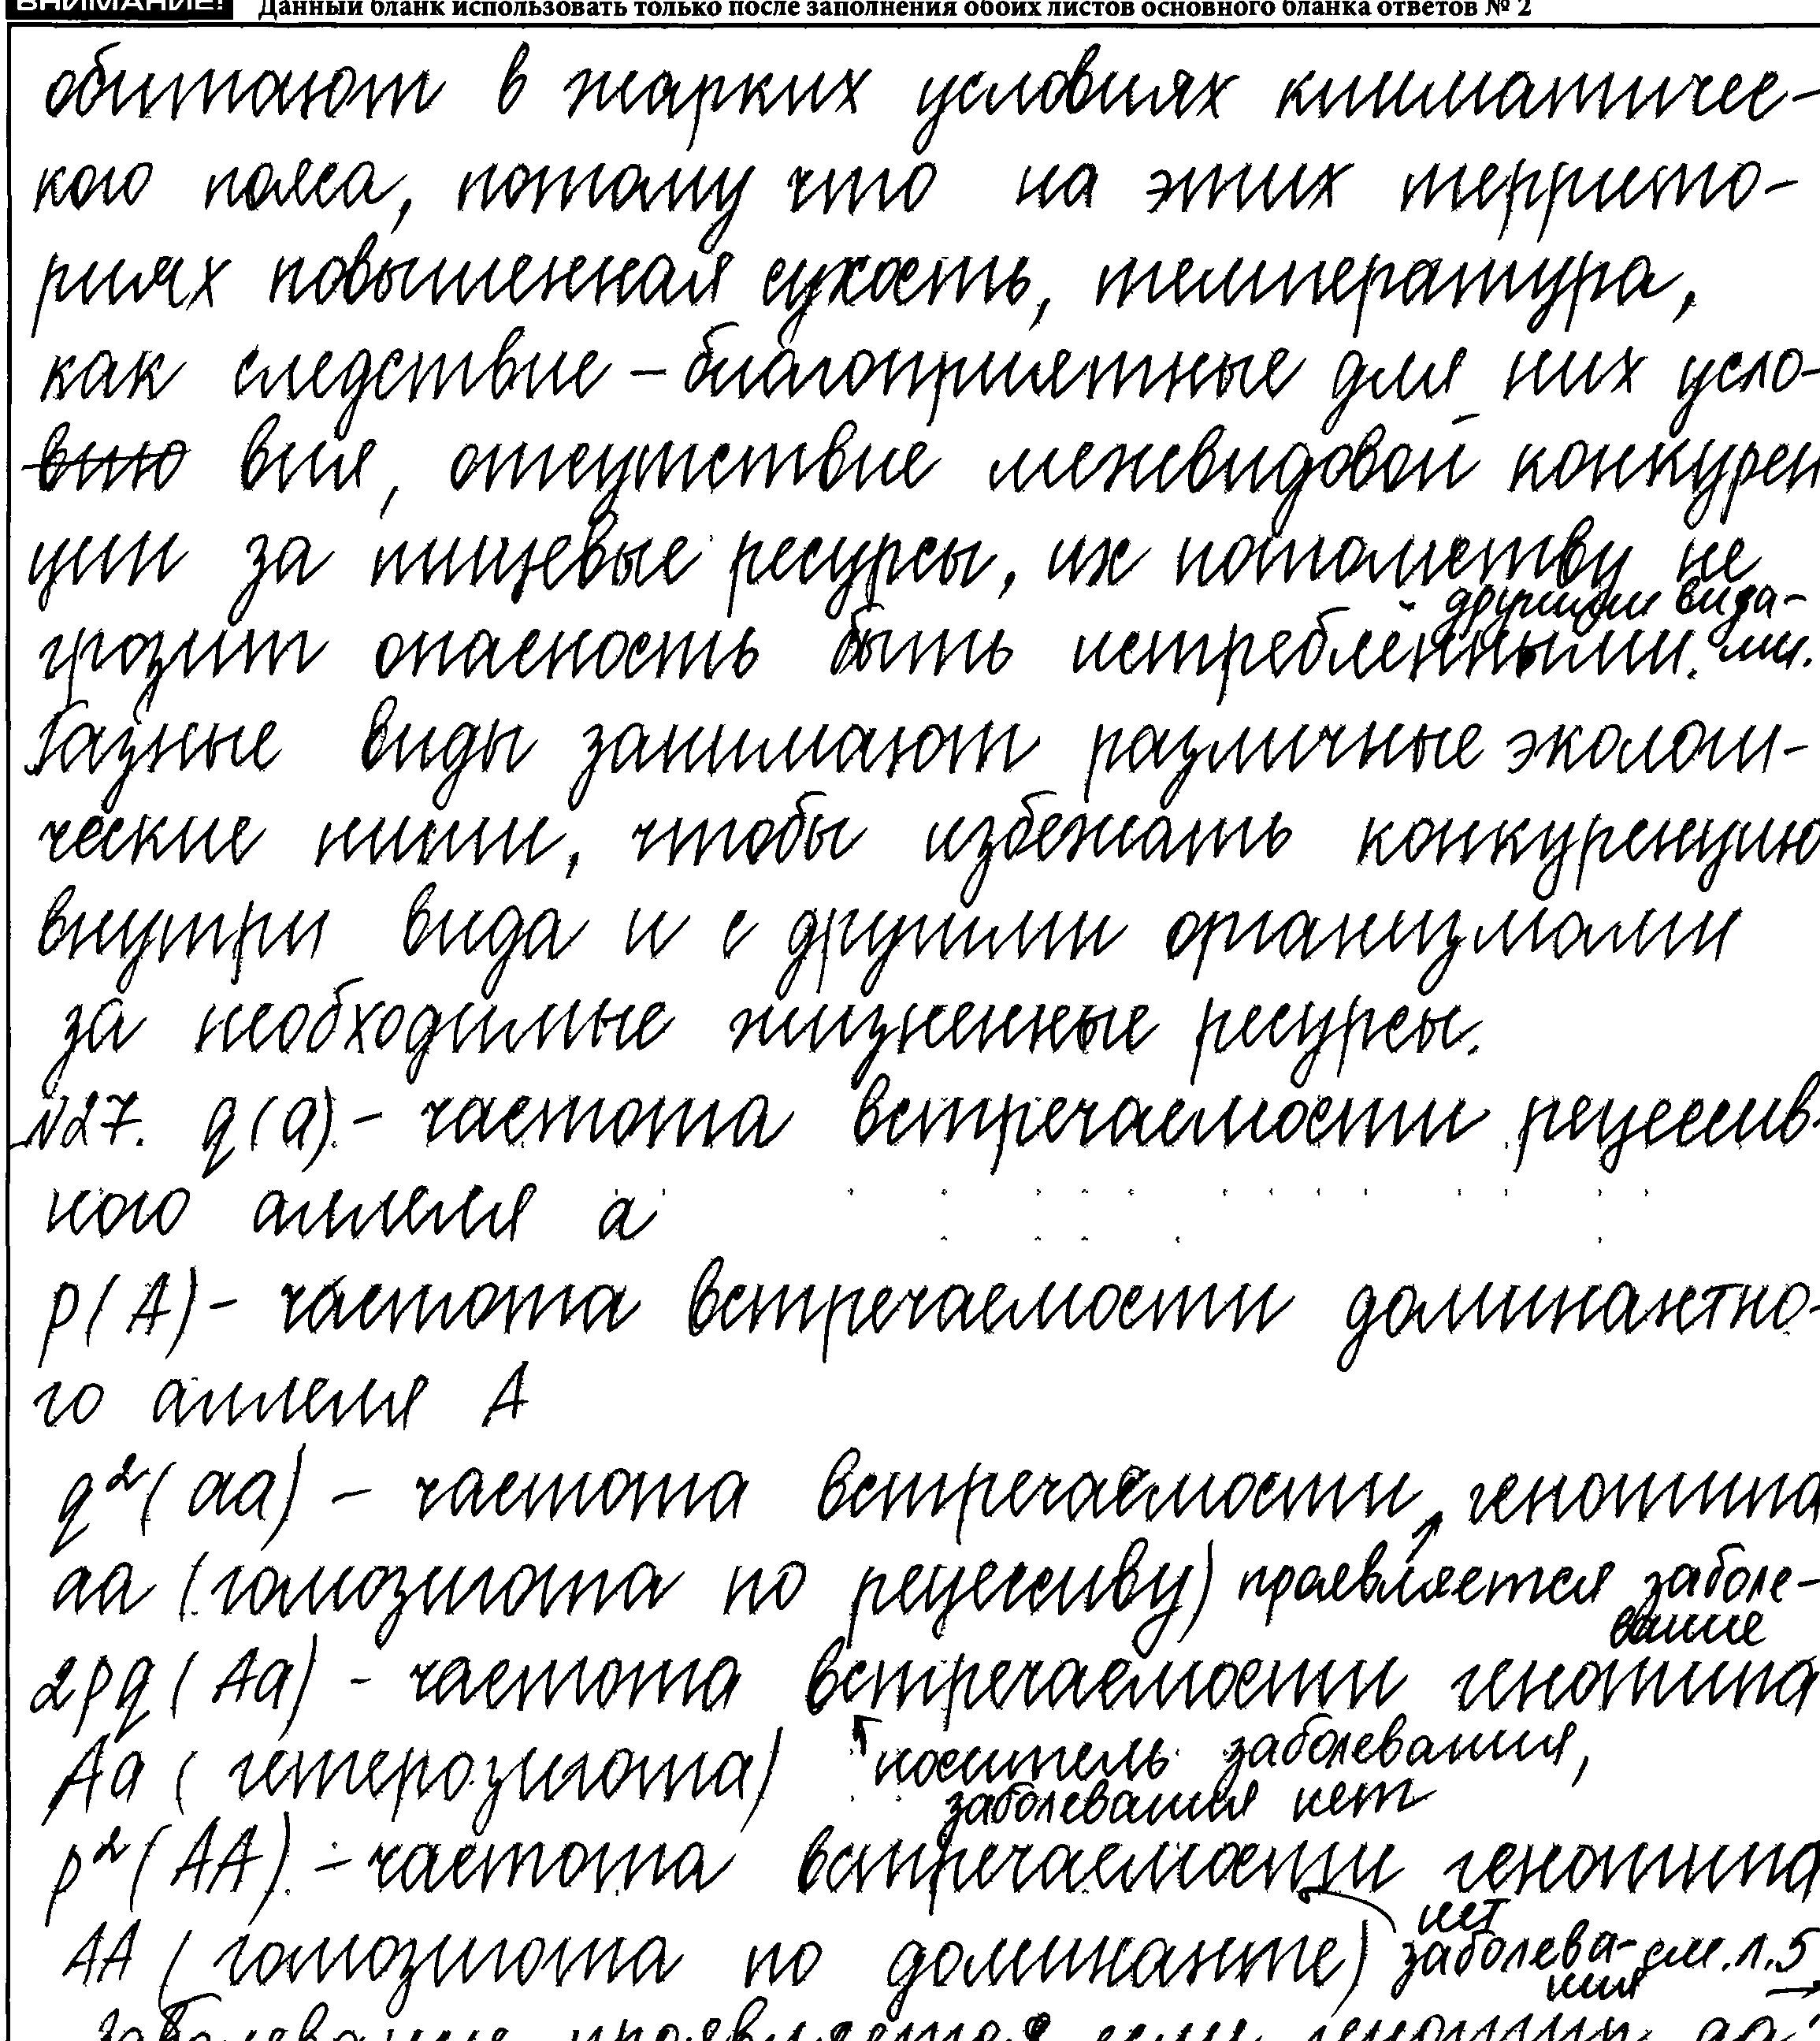 ВНИМАНИЕ! Данный бланк использовать только после заполнения обоих листов основного бланка ответов № 2
обитают в жарких условиях климатичес-
кого пояса, потому что на этих террито-
риях повышенная сухость, температура,
как следствие – благоприятные для них усло-
вию вия, отсутствие межвидовой конкурен
ции за пищевые ресурсы, их потомству не
другими вида-
грозит опасность быть истреблёнными. ми.
Разные виды занимают различные экологи-
ческие ниши, чтобы избежать конкуренцию
внутри вида и с другими организмами
за необходимые жизненные ресурсы.
№27. q(a) – частота встречаемости рецессив-
ного аллеля a
p(A) – частота встречаемости доминантно-
го аллеля A
q²(aa) – частота встречаемости генотипа
aa (гомозигота по рецессиву) проявляется заболе-
вание
2pq(Aa) – частота встречаемости генотипа
Aa (гетерозигота) носитель заболевания,
заболевания нет
p²(AA) – частота встречаемости генотипа
нет
AA (гомозигота по доминанте) заболева- см. л. 5
ния
заболевание проявляется если генотип aa